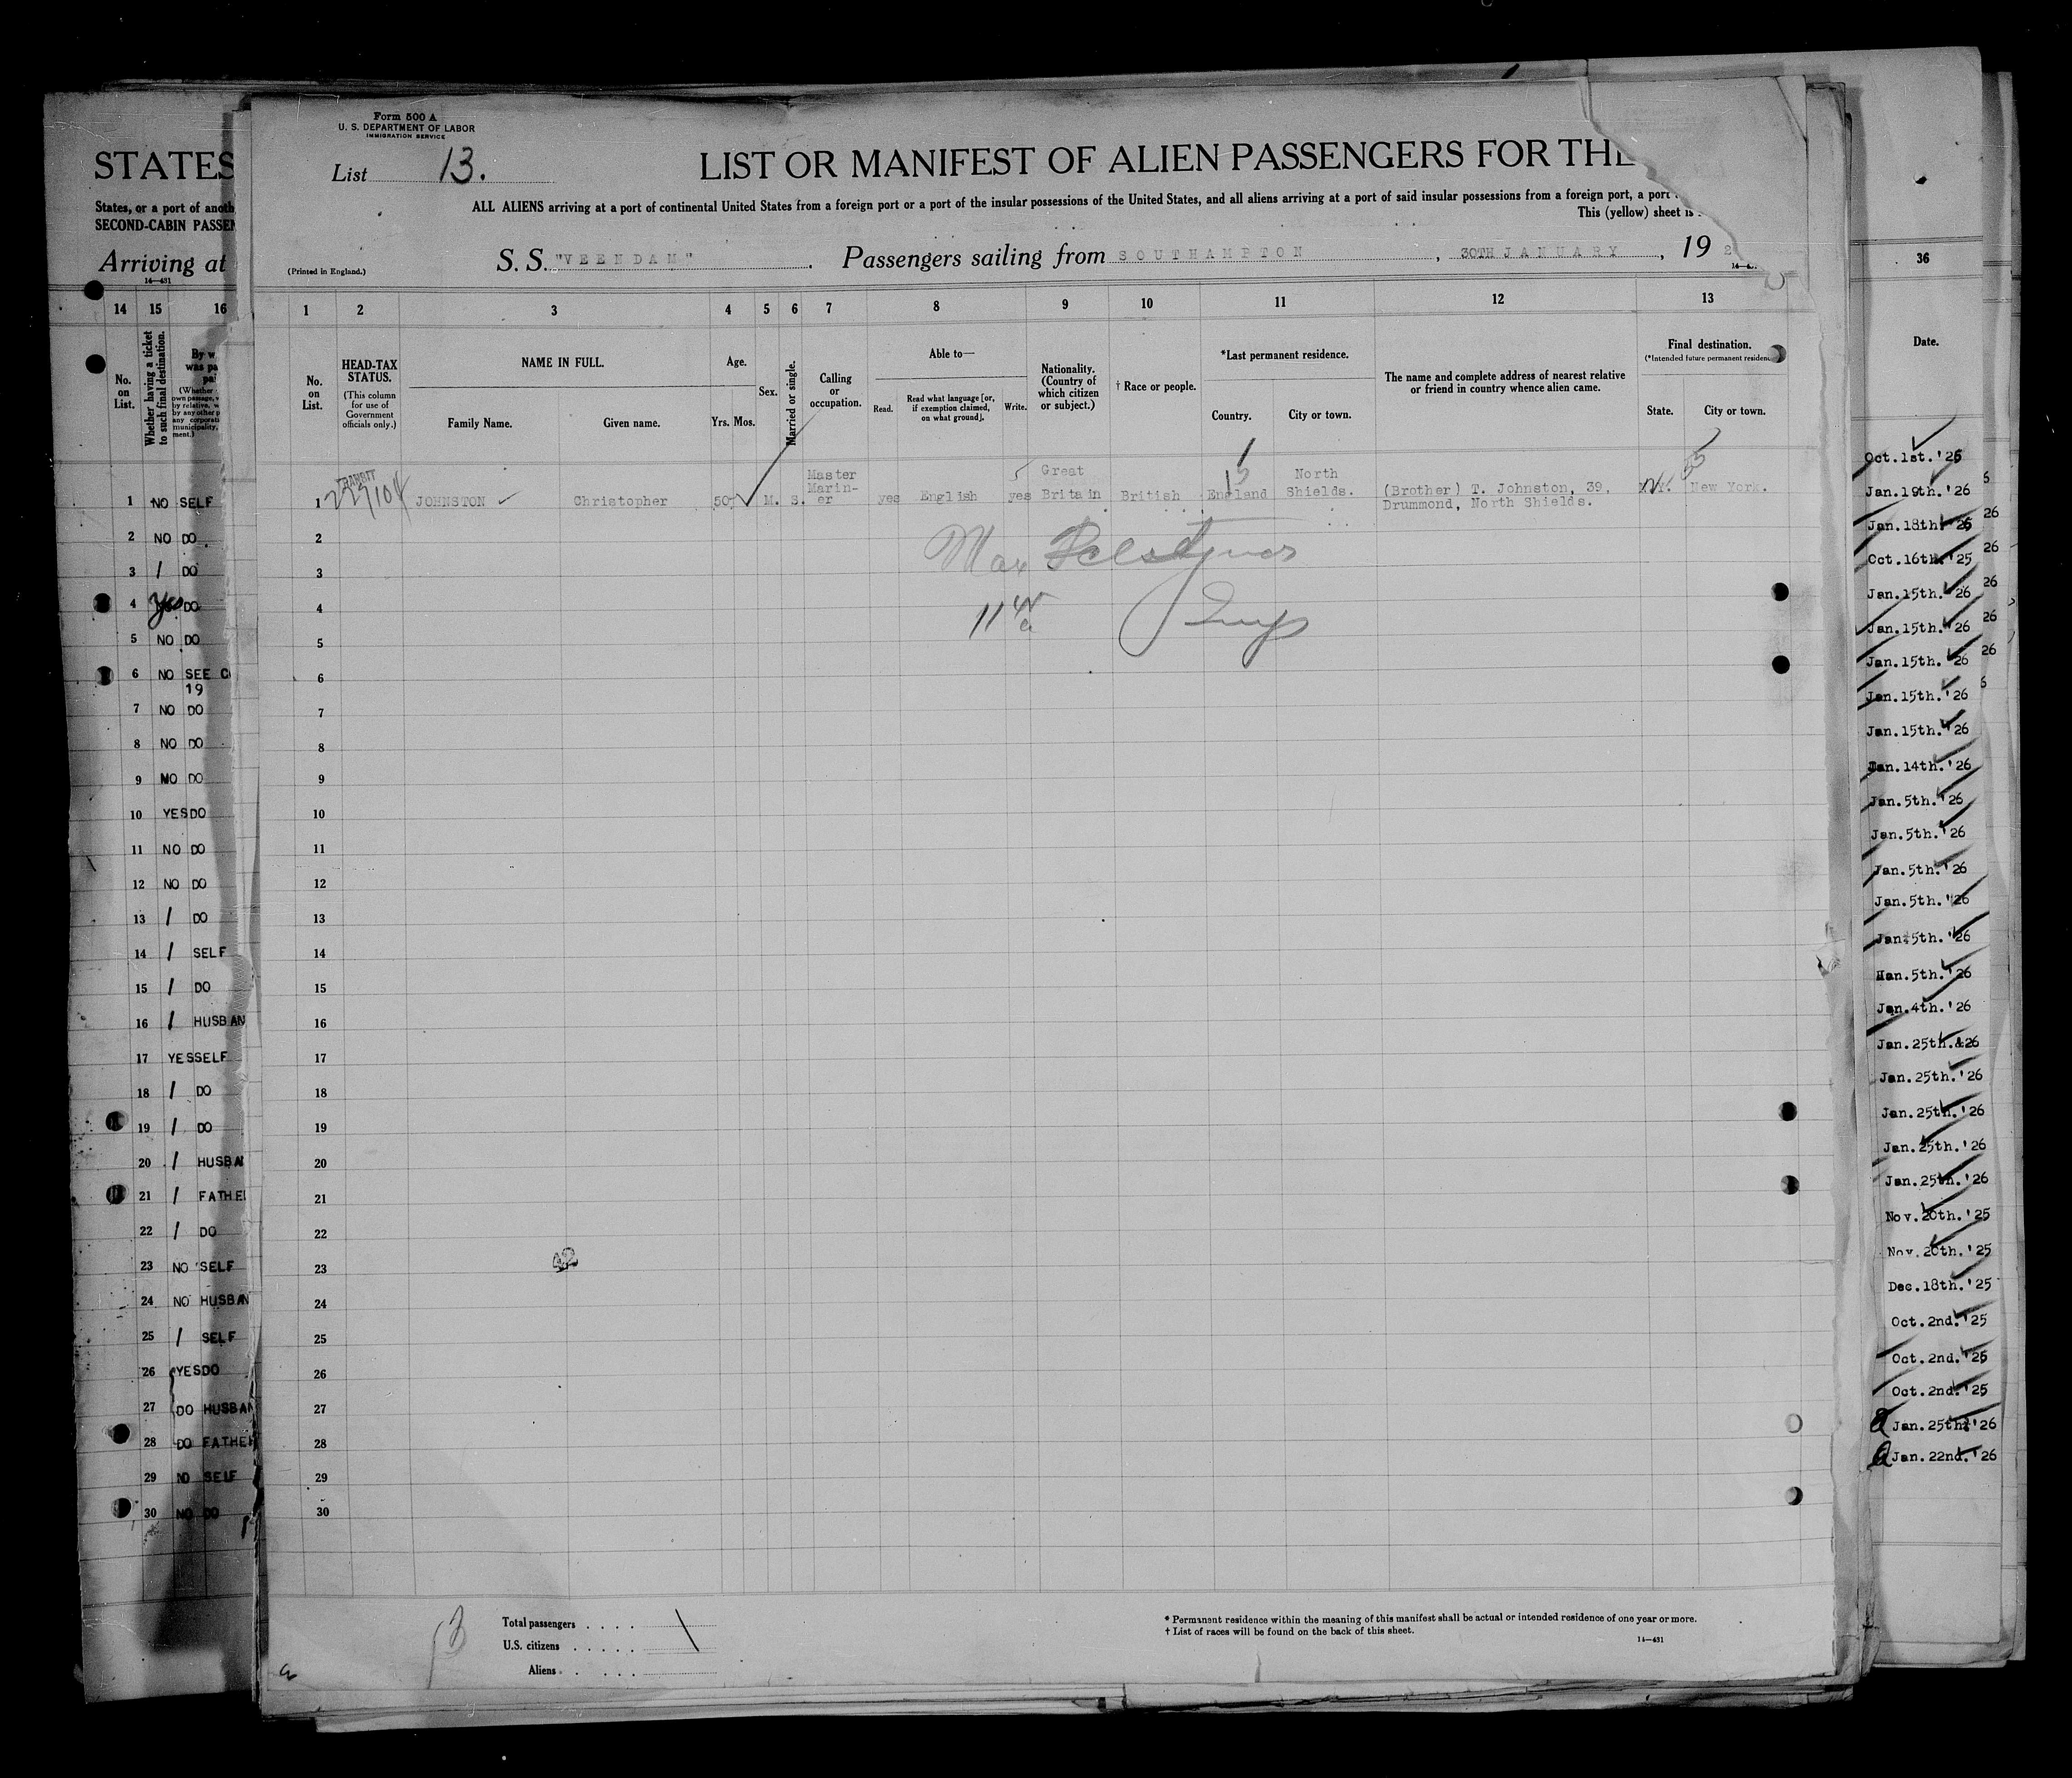 Form 500 A
U. S. DEPARTMENT OF LABOR
IMMIGRATION SERVICE
List 13.
LIST OR MANIFEST OF ALIEN PASSENGERS FOR THE
ALL ALIENS arriving at a port of continental United States from a foreign port or a port of the insular possessions of the United States, and all aliens arriving at a port of said insular possessions from a foreign port, a port
This (yellow) sheet is
(Printed in England.)
S. S. "VEENDAM". Passengers sailing from SOUTHAMPTON, 30TH JANUARY, 19 2
1 2 3 4 5 6 7 8 9 10 11 12 13
No. on List.
HEAD-TAX STATUS.
(This column for use of Government officials only.)
NAME IN FULL.
Family Name. Given name.
Age.
Yrs. Mos.
Sex.
Married or single.
Calling or occupation.
Able to—
Read. Read what language [or, if exemption claimed, on what ground]. Write.
Nationality. (Country of which citizen or subject.)
† Race or people.
*Last permanent residence.
Country. City or town.
The name and complete address of nearest relative or friend in country whence alien came.
Final destination.
(*Intended future permanent residen
State. City or town.
1 JOHNSTON Christopher 50 M. S. Master Marin-er yes English yes Great Britain British England North Shields. (Brother) T. Johnston, 39, Drummond, North Shields. N.Y. New York.
2
3
4
5
6
7
8
9
10
11
12
13
14
15
16
17
18
19
20
21
22
23
24
25
26
27
28
29
30
Total passengers
U.S. citizens
Aliens
* Permanent residence within the meaning of this manifest shall be actual or intended residence of one year or more.
† List of races will be found on the back of this sheet.
14—431
STATES
States, or a port of anoth
SECOND-CABIN PASSEN
Arriving at
14—431
14 15 16
No. on List.
Whether having a ticket to such final destination.
By w
was pa
1 NO SELF
2 NO DO
3 / DO
4 yes DO
5 NO DO
6 NO SEE C
19
7 NO DO
8 NO DO
9 NO DO
10 YES DO
11 NO DO
12 NO DO
13 / DO
14 / SELF
15 / DO
16 / HUSBAN
17 YES SELF
18 / DO
19 / DO
20 / HUSBA
21 / FATHE
22 / DO
23 NO SELF
24 NO HUSBAN
25 / SELF
26 YES DO
27 DO HUSBAN
28 DO FATHE
29 NO SELF
30 NO DO
36
Date.
Oct.1st.'25
Jan.19th.'26
Jan.18th.'26
Oct.16th.'25
Jan.15th.'26
Jan.15th.'26
Jan.15th.'26
Jan.15th.'26
Jan.15th.'26
Jan.14th.'26
Jan.5th.'26
Jan.5th.'26
Jan.5th.'26
Jan.5th.'26
Jan.5th.'26
Jan.5th.'26
Jan.4th.'26
Jan.25th.&26
Jan.25th.'26
Jan.25th.'26
Jan.25th.'26
Jan.25th.'26
Nov.20th.'25
Nov.20th.'25
Dec.18th.'25
Oct.2nd.'25
Oct.2nd.'25
Oct.2nd.'25
Jan.25th.'26
Jan.22nd.'26